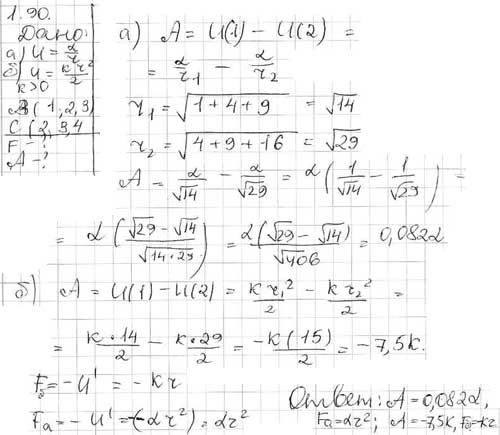 1.90.
Дано:
а) U = α/r
б) U = kr²/2
k>0
B(1,2,3)
C(2,3,4
F - ?
A - ?
а) A = U(1) - U(2) =
= α/r₁ - α/r₂
r₁ = √(1+4+9) = √14
r₂ = √(4+9+16) = √29
A = α/√14 - α/√29 = α(1/√14 - 1/√29) =
= α((√29-√14)/√(14*29)) = α(√29-√14)/√406 = 0,082α
б) A = U(1) - U(2) = kr₁²/2 - kr₂²/2 =
= k*14/2 - k*29/2 = -k(15)/2 = -7,5k.
Fб = -U' = -kr
Fа = -U' = -(-αr²) = αr²
Ответ: A = 0,082α,
Fа = αr²; A = -7,5k, Fб = -kr